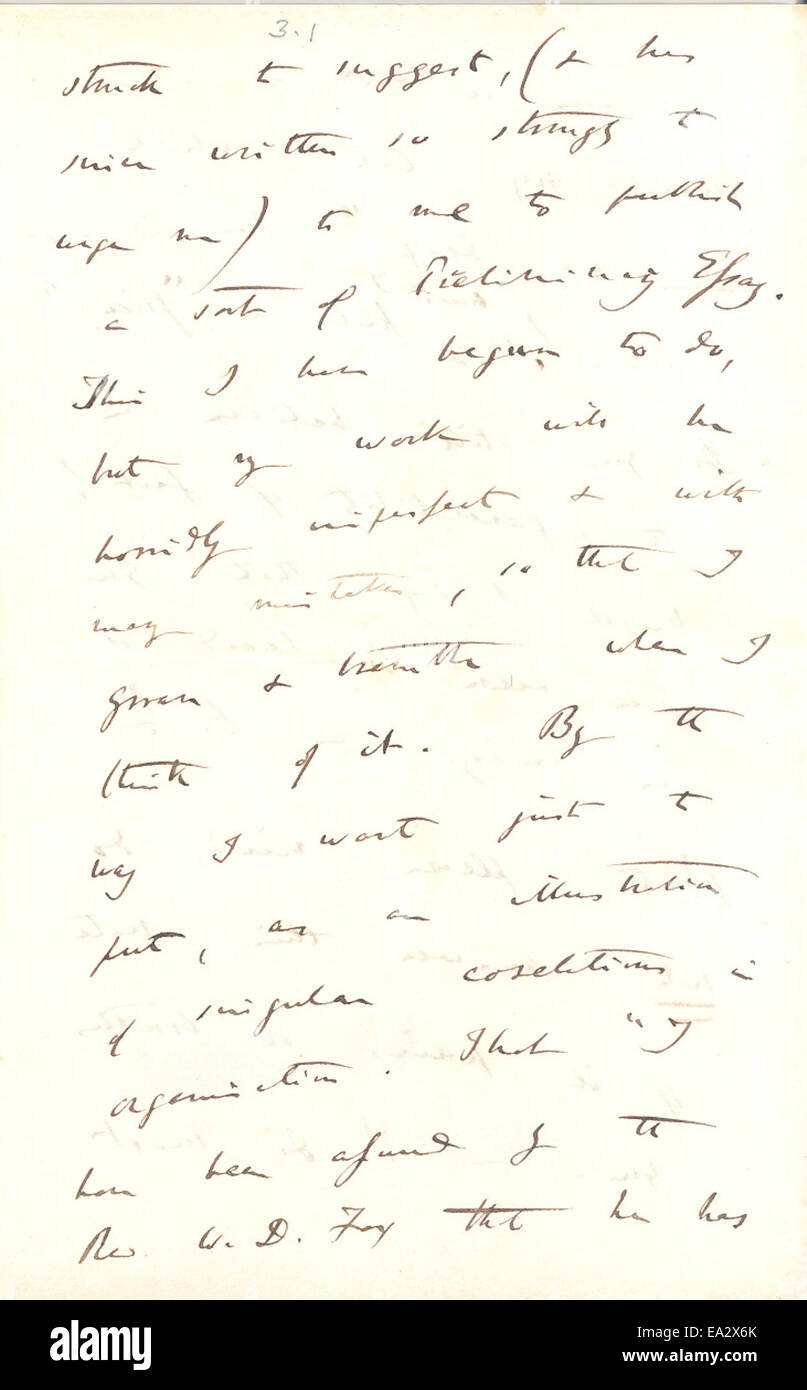 3.1
struck to suggest, (& has
since written so strongly to
urge me) to me to publish
a sort of Preliminary Essay.
This I have begun to do,
but my work will be
horridly imperfect & with
many mistakes, so that I
groan & tremble when I
think of it. By the
way I want just to
put, as an illustration
of singular corelations in
organisation. That "I
have been assured by the
Rev. W. D. Fox that he has
alamy
Image ID: EA2X6K
www.alamy.com